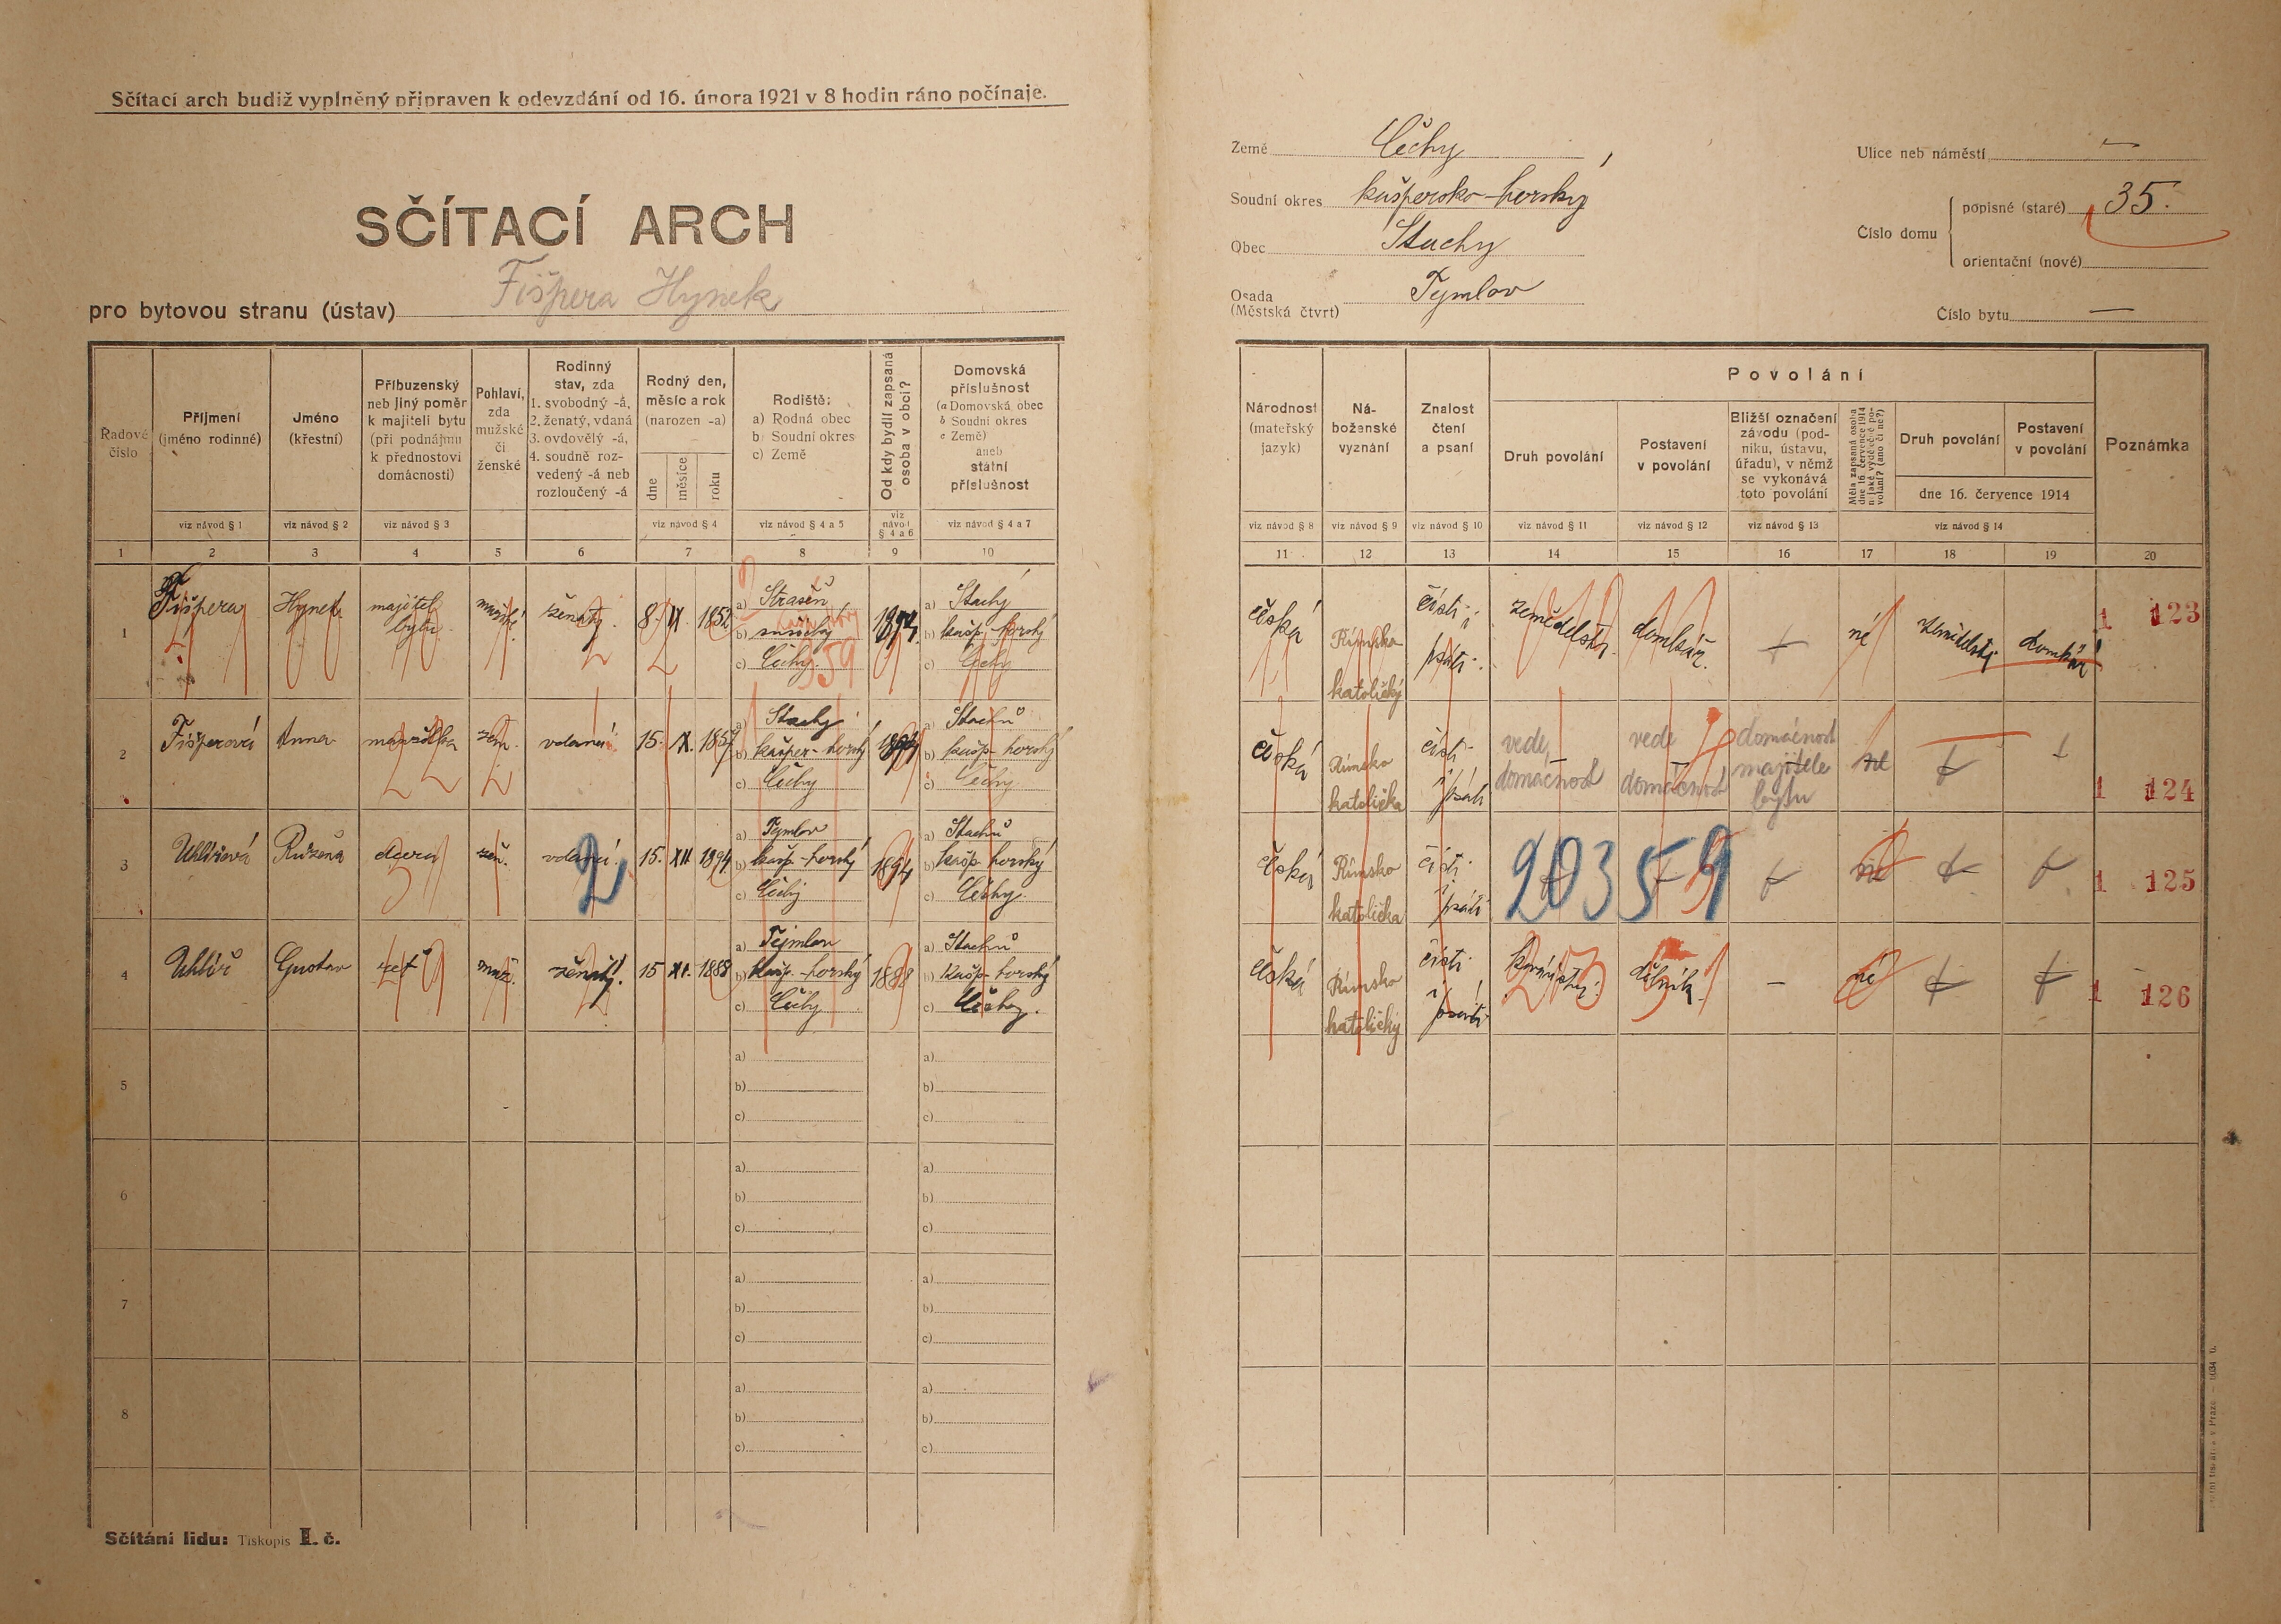 Sčítací arch budiž vyplněný připraven k odevzdání od 16. února 1921 v 8 hodin ráno počínaje.
SČÍTACÍ ARCH
pro bytovou stranu (ústav) Fišpera Hynek
Země Čechy
Soudní okres kašpersko-horský
Obec Stachy
Osada Tejmlov
(Městská čtvrť)
Ulice neb náměstí —
Číslo domu
popisné (staré) 35.
orientační (nové)
Číslo bytu —
Řadové číslo
Příjmení (jméno rodinné)
Jméno (křestní)
Příbuzenský neb jiný poměr k majiteli bytu (při podnájmu k přednostovi domácnosti)
Pohlaví, zda mužské či ženské
Rodinný stav, zda 1. svobodný -á, 2. ženatý, vdaná 3. ovdovělý -á, 4. soudně rozvedený -á neb rozloučený -á
Rodný den, měsíc a rok (narozen -a)
dne měsíce roku
Rodiště: a) Rodná obec b) Soudní okres c) Země
Od kdy bydlí zapsaná osoba v obci?
Domovská příslušnost (a Domovská obec b Soudní okres c Země) aneb státní příslušnost
Národnost (mateřský jazyk)
Náboženské vyznání
Znalost čtení a psaní
Povolání
Druh povolání
Postavení v povolání
Bližší označení závodu (podniku, ústavu, úřadu), v němž se vykonává toto povolání
Měla zapsaná osoba dne 16. července 1914 nějaké výdělečné povolání? (ano či ne?)
Druh povolání
Postavení v povolání
dne 16. července 1914
Poznámka
viz návod § 1 viz návod § 2 viz návod § 3 viz návod § 4 viz návod § 4 a 5 viz návod § 4 a 6 viz návod § 4 a 7 viz návod § 8 viz návod § 9 viz návod § 10 viz návod § 11 viz návod § 12 viz návod § 13 viz návod § 14
1 2 3 4 5 6 7 8 9 10 11 12 13 14 15 16 17 18 19 20
1 Fišpera Hynek majitel bytu mužské ženatý. 8. IX 1852 a) Strašín b) sušický c) Čechy 359 1894. a) Stachy b) kašp.-horský c) Čechy česká Římsko katolický čísti i psáti. zemědělství domkář. né zemědělství domkář 1 123
2 Fišperová Anna manželka žen. vdaná 15. X. 1857 a) Stachy b) kašper-horský c) Čechy a) Stachů b) kašp-horský c) Čechy česká Římsko katolička čísti i psáti vede domácnost vede domácnost domácnost majitele bytu ne 1 124
3 Uhlířová Růžena dcera žen. vdaná. 2 15. XII 1894 a) Tejmlov b) kašp.-horský c) Čechy 1894 a) Stachů b) kašp-horský c) Čechy česká Římsko katolička čísti i psáti 20359 ne 1 125
4 Uhlíř Gustav zeť muž. ženatý. 15 XI. 1888 a) Tejmlov b) kašp.-horský c) Čechy 1888 a) Stachů b) kašp-horský c) Čechy. česká Římsko katolický čísti i psáti dělník — né 1 126
5 a) b) c) a) b) c)
6 a) b) c) a) b) c)
7 a) b) c) a) b) c)
8 a) b) c) a) b) c)
Sčítání lidu: Tiskopis I. č.